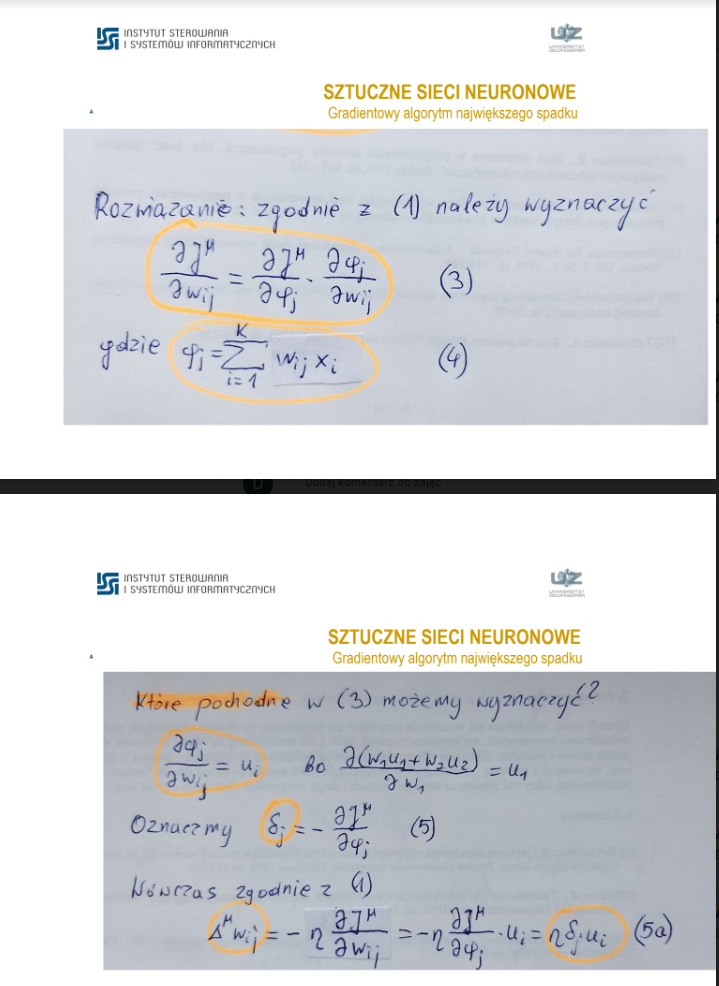 INSTYTUT STEROWANIA
I SYSTEMÓW INFORMATYCZNYCH
SZTUCZNE SIECI NEURONOWE
Gradientowy algorytm największego spadku
Rozwiązanie: zgodnie z (1) należy wyznaczyć
∂J^μ/∂w_ij = ∂J^μ/∂φ_j · ∂φ_j/∂w_ij (3)
gdzie φ_j = Σ_{i=1}^{K} w_ij x_i (4)
D Dodaj komentarz do zajęć
INSTYTUT STEROWANIA
I SYSTEMÓW INFORMATYCZNYCH
SZTUCZNE SIECI NEURONOWE
Gradientowy algorytm największego spadku
Które pochodne w (3) możemy wyznaczyć?
∂φ_j/∂w_ij = u_i bo ∂(w_1u_1+w_2u_2)/∂w_1 = u_1
Oznaczmy δ_j = - ∂J^μ/∂φ_j (5)
Wówczas zgodnie z (1)
Δ^μ w_ij = - η ∂J^μ/∂w_ij = - η ∂J^μ/∂φ_j · u_i = η δ_j u_i (5a)